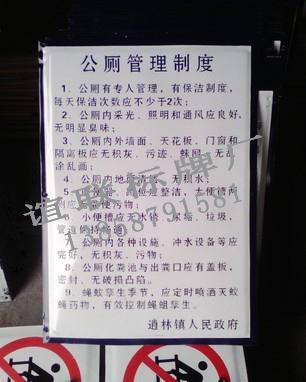 公厕管理制度
1、公厕有专人管理，有保洁制度，
每天保洁次数应不少于2次；
2、公厕内采光、照明和通风应良好，
无明显臭味；
3、公厕内外墙面、天花板、门窗和
隔离板应无积灰、污迹、蛛网、无
涂乱画；
4、公厕内地面清洁、无积水；
5、位应整洁，大便槽两
侧应无粪便污物；
6、小便槽应无水锈、尿垢、垃圾，
管道保持畅通；
7、公厕内各种设施、冲水设备等应
完好，无积灰、污物；
8、公厕化粪池与出粪口应有盖板，
密封、无破损凸陷。
9、蝇蚊孳生季节，应定时喷洒灭蚊
蝇药物，有效控制蝇蛆孳生。
逍林镇人民政府
谊联标牌厂
13858791581